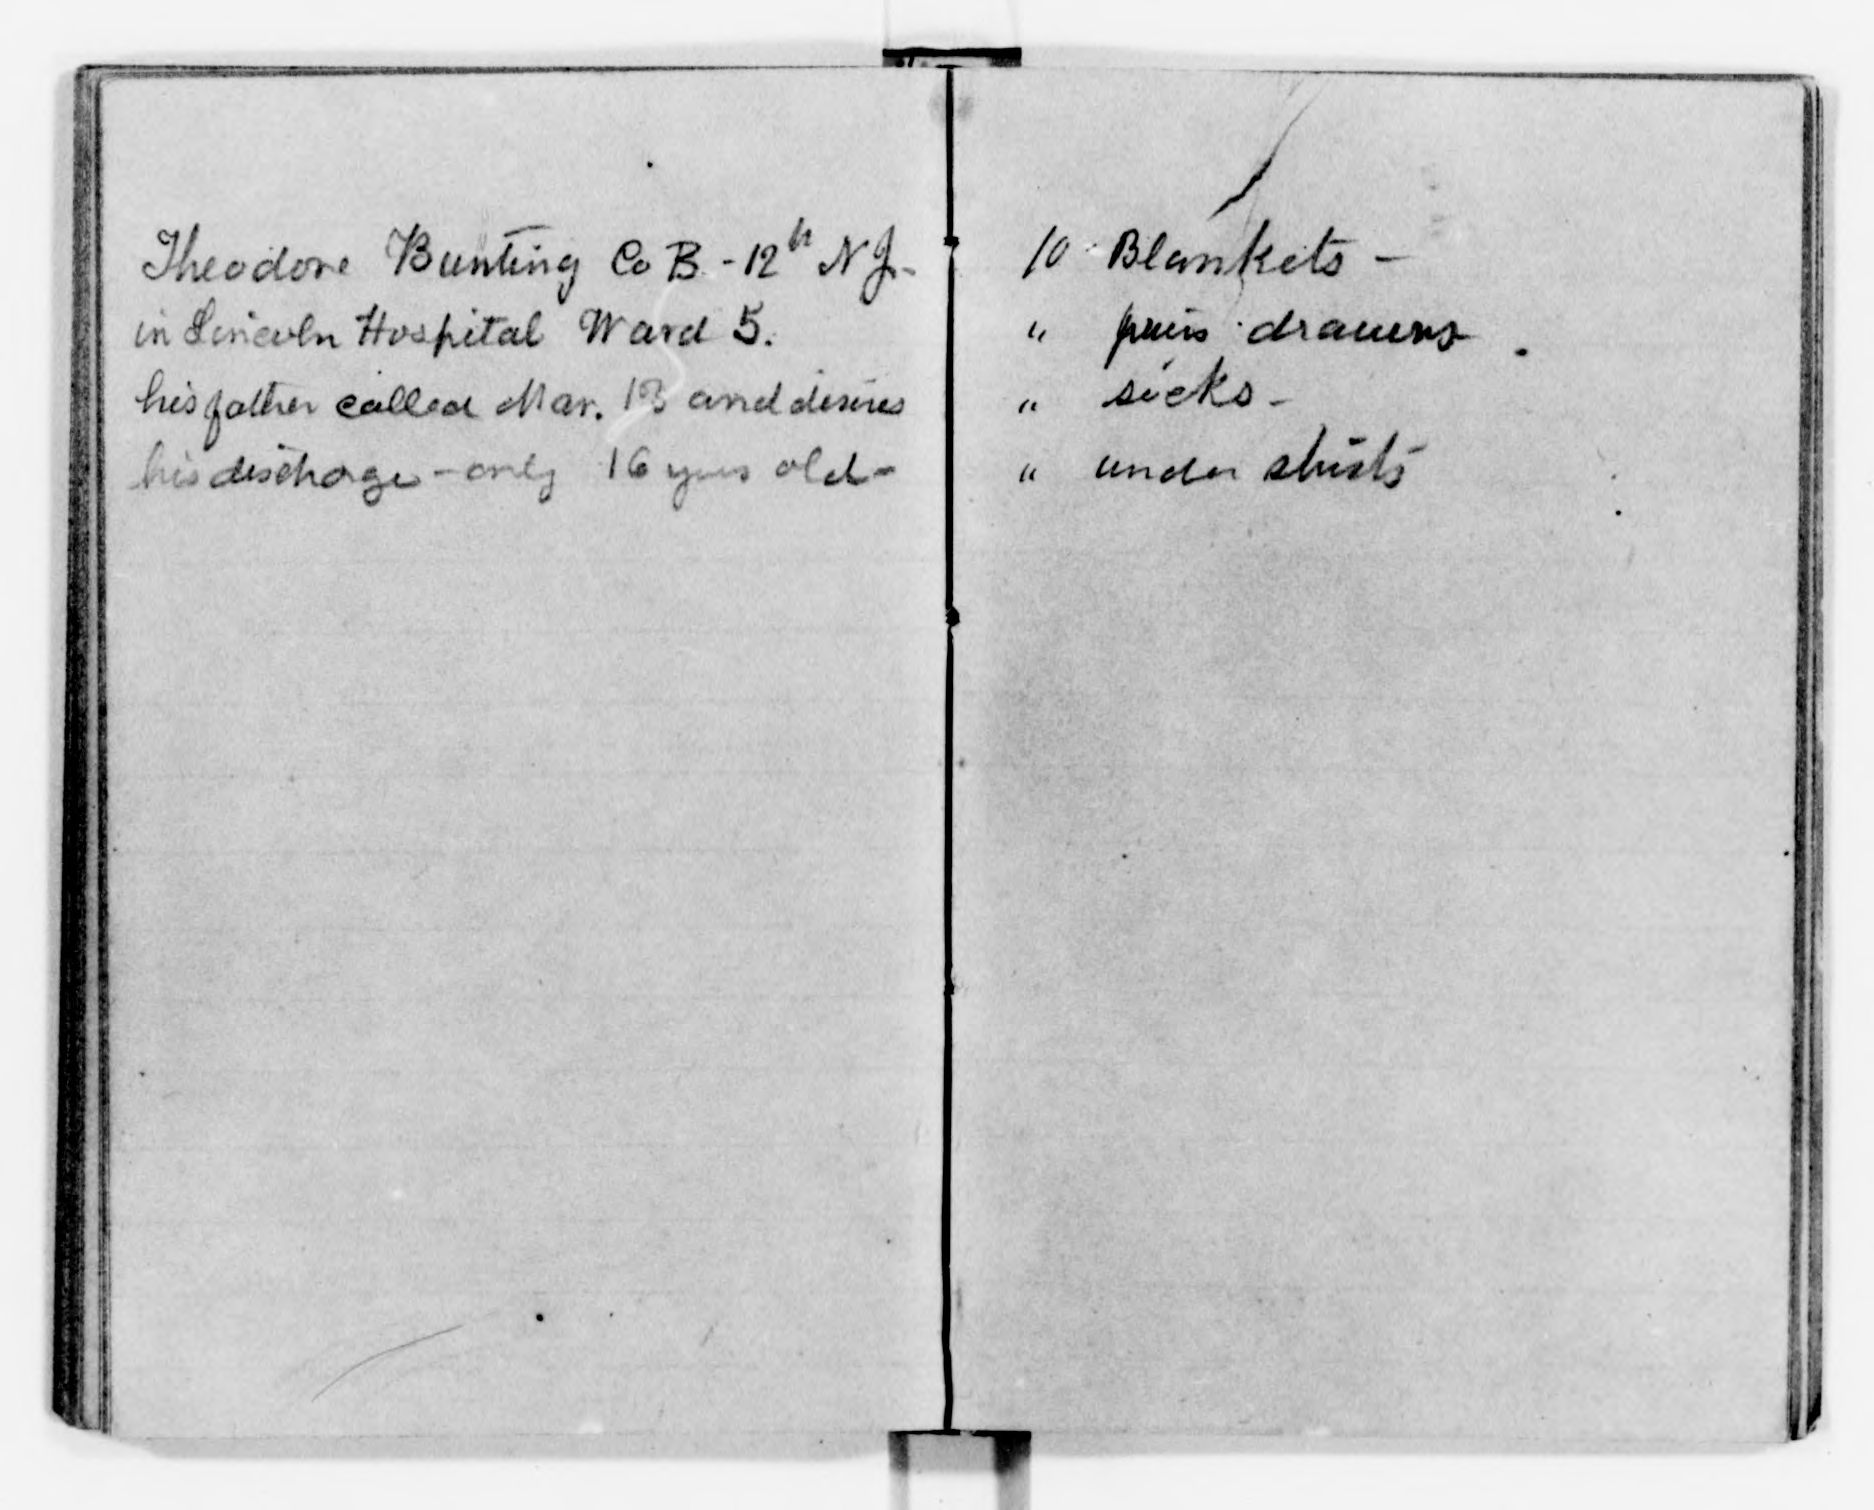 Theodore Bunting Co B - 12th N J -
in Lincoln Hospital Ward 5.
his father called Mar. and desires
his discharge - only 16 years old -
10 Blankets -
" pairs drawers
" socks -
" under shirts